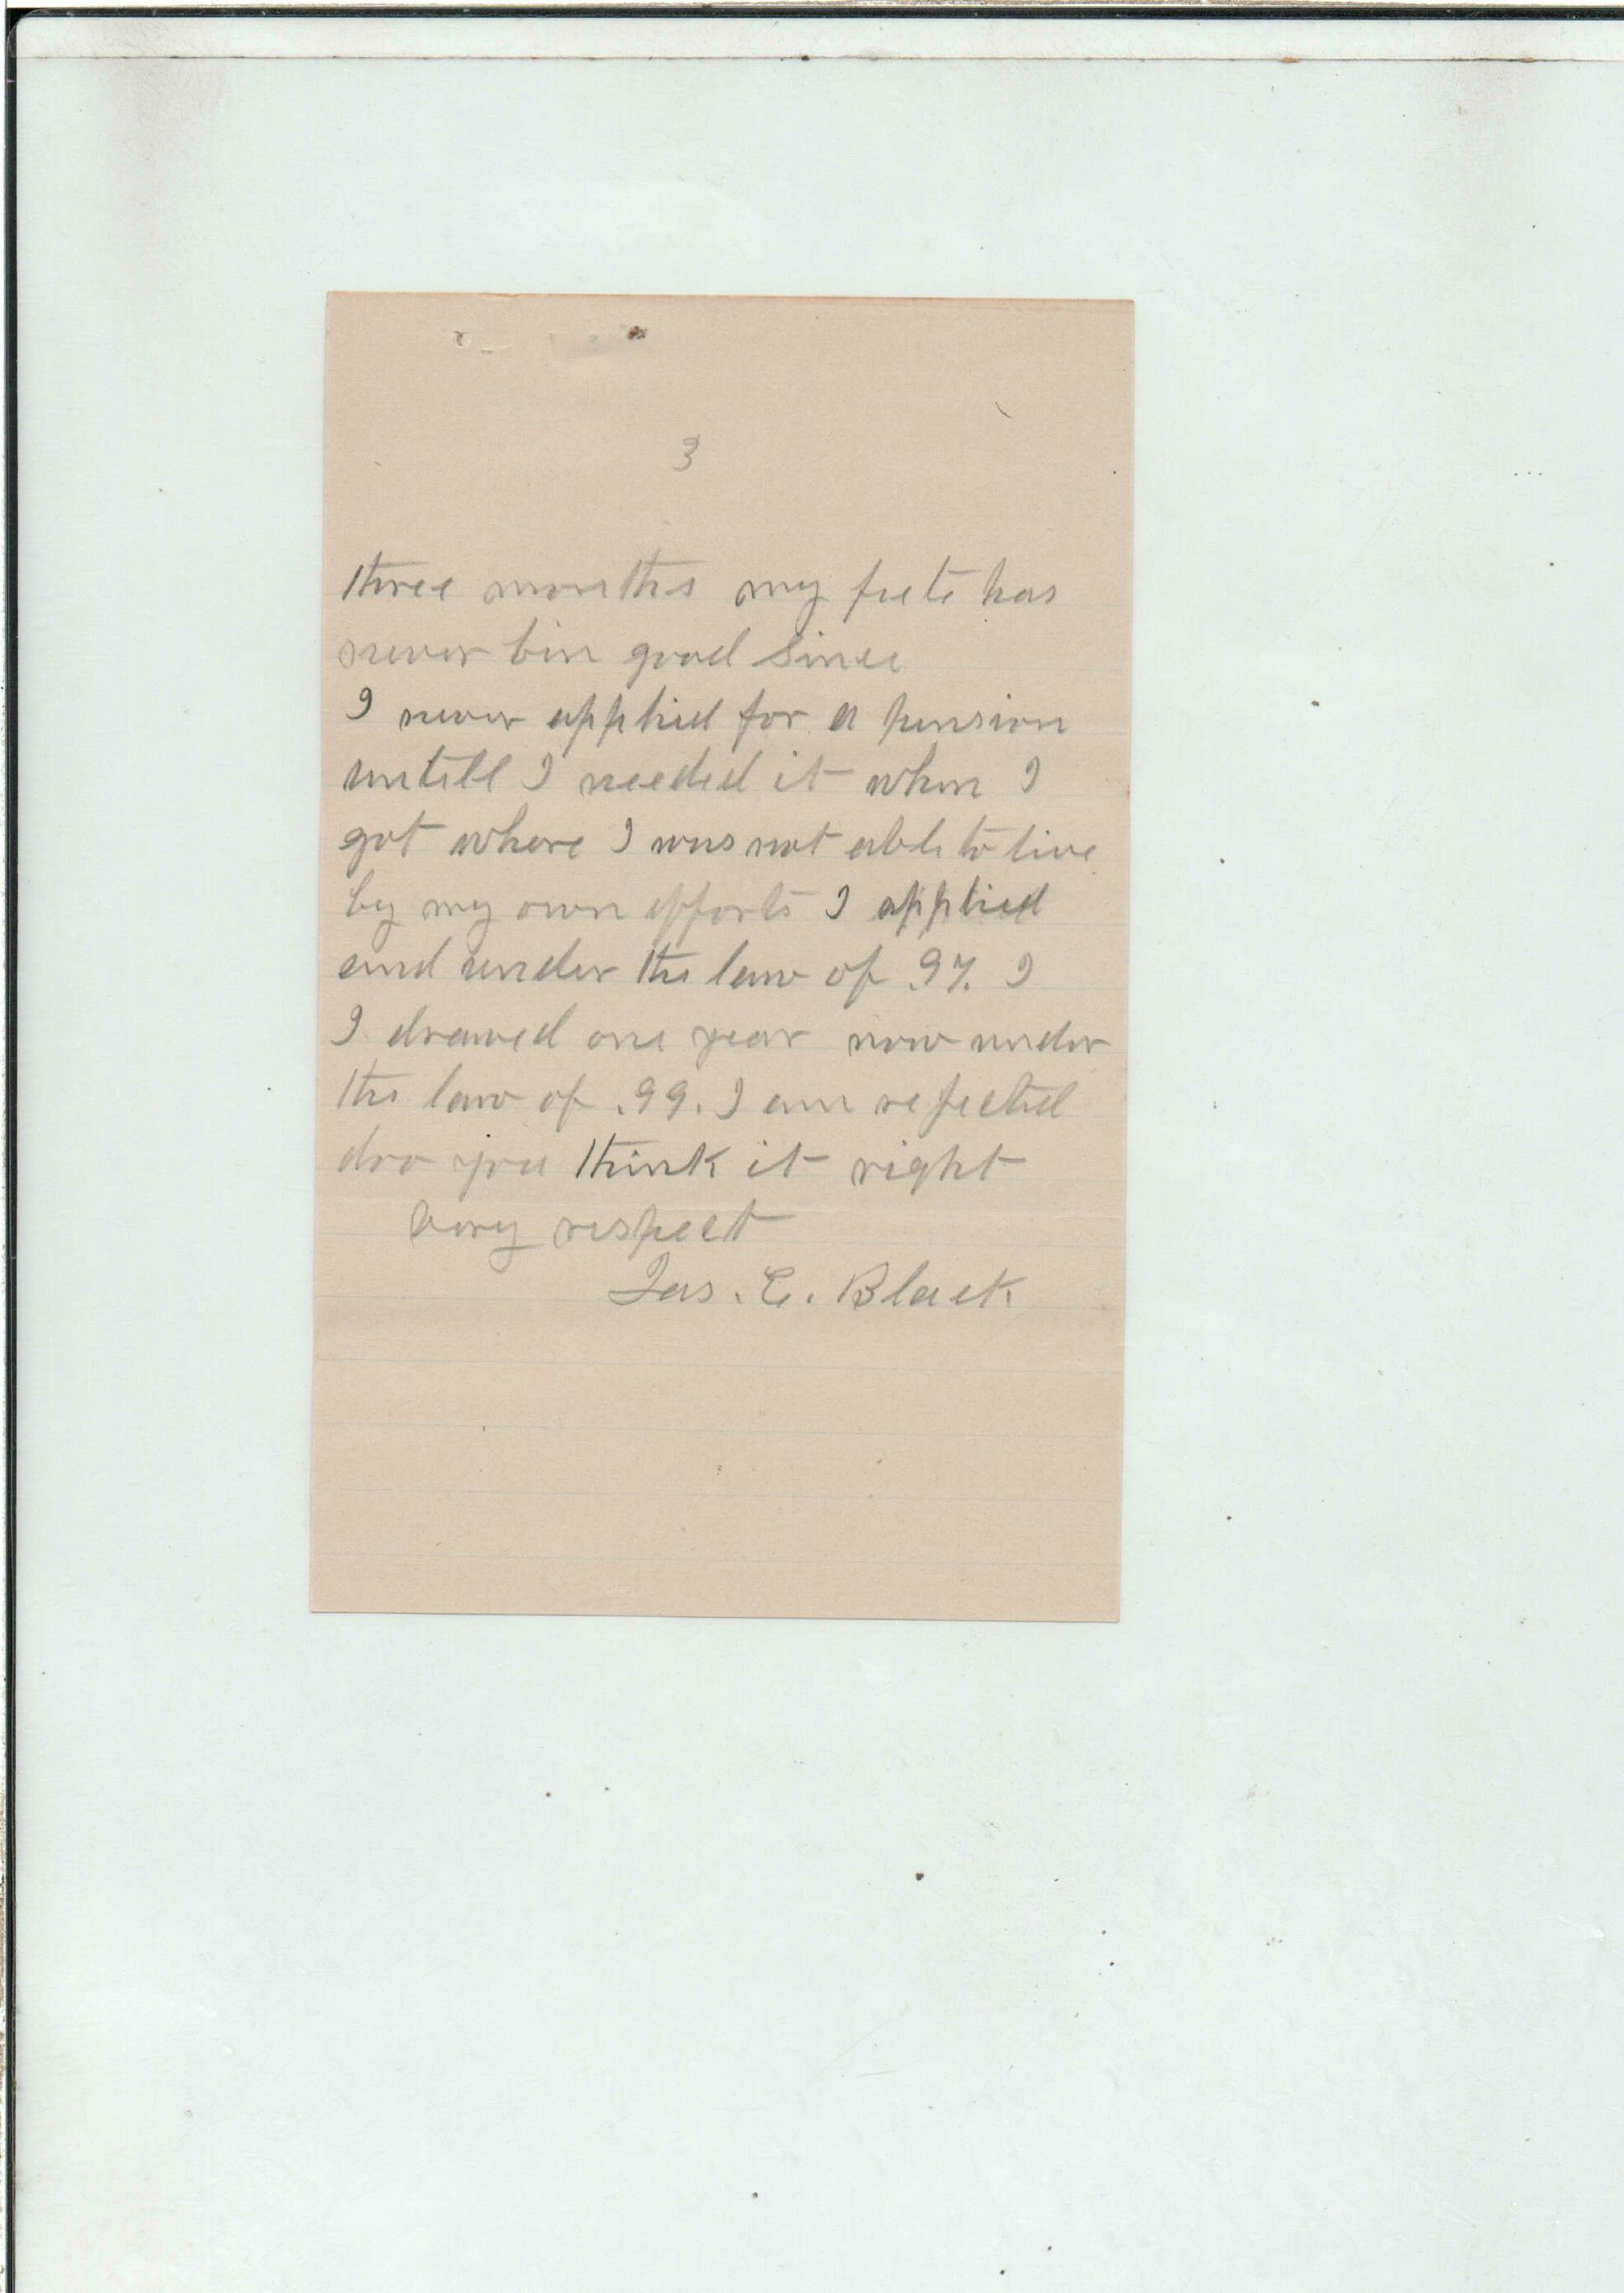 3
three months my feete has
never bin good since
I never applied for a pension
untill I needed it when I
got where I was not able to live
by my own efforts I applied
and under the law of .97. I
I drawed one year now under
the law of .99. I am rejected
doo you think it right
very respect
Jas. C. Black